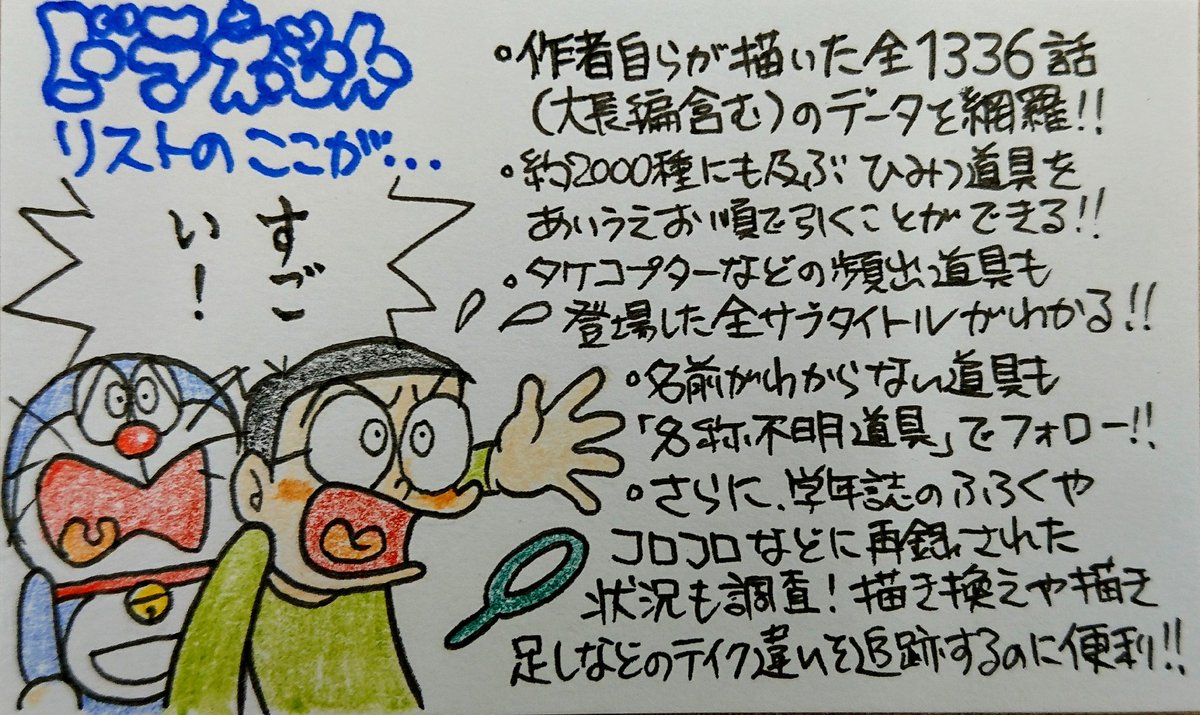 ドラえもん
リストのここが…
すご
い!
・作者自らが描いた全1336話
(大長編含む)のデータを網羅!!
・約2000種にも及ぶひみつ道具を
あいうえお順で引くことができる!!
・タケコプターなどの頻出道具も
登場した全サブタイトルがわかる!!
・名前がわからない道具も
「名称不明道具」でフォロー!!
・さらに、学年誌のふろくや
コロコロなどに再録された
状況も調査!描き換えや描き
足しなどのテイク違いを追跡するのに便利!!